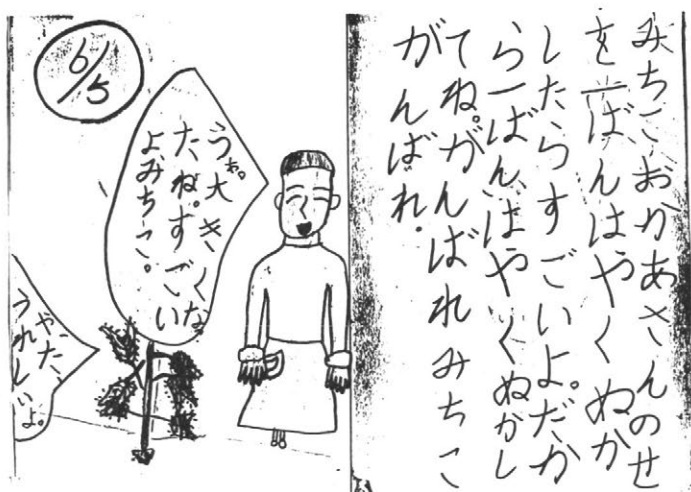 みちこ、おかあさんのせ
を一ばんはやくぬか
したらすごいよ。だか
ら一ばんはやくぬかし
てね。がんばれみちこ
がんばれ.
6/5
うわ。大きくな
たね。すごい
よみちこ。
や、た、
うれしいよ。